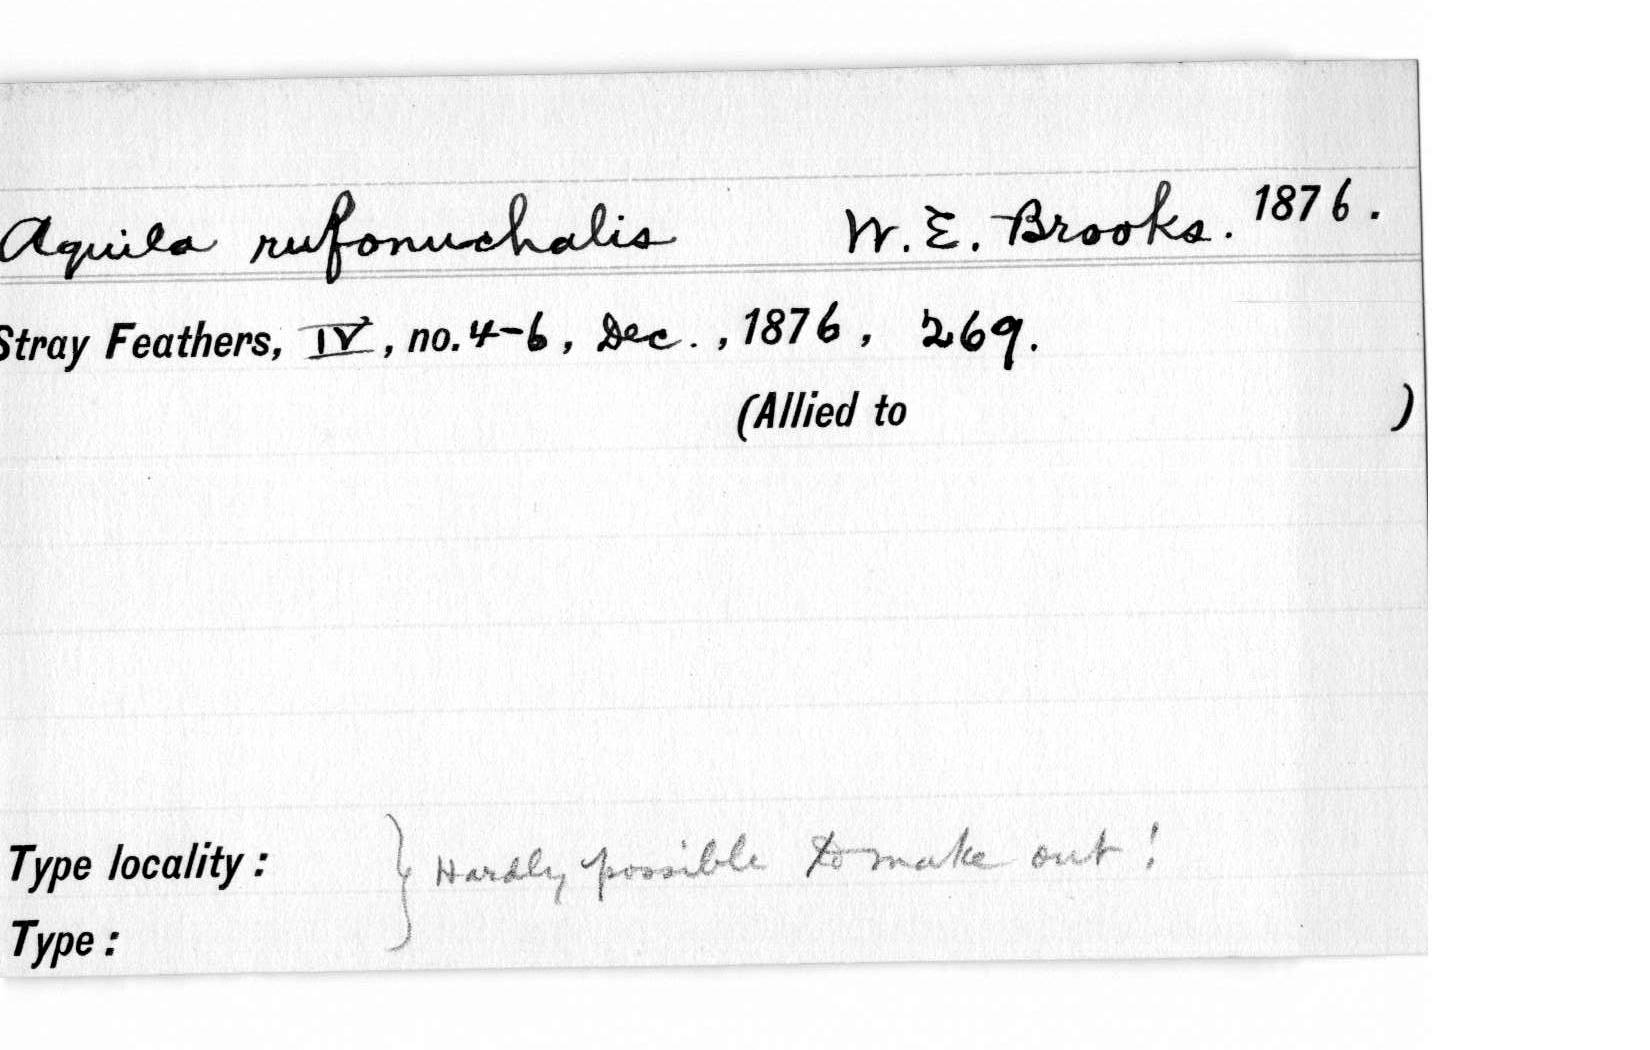 Aquila rufonuchalis W. E. Brooks. 1876.
Stray Feathers, IV, no. 4-6, Dec., 1876, 269.
(Allied to )
Type locality: } Hardly possible to make out!
Type: